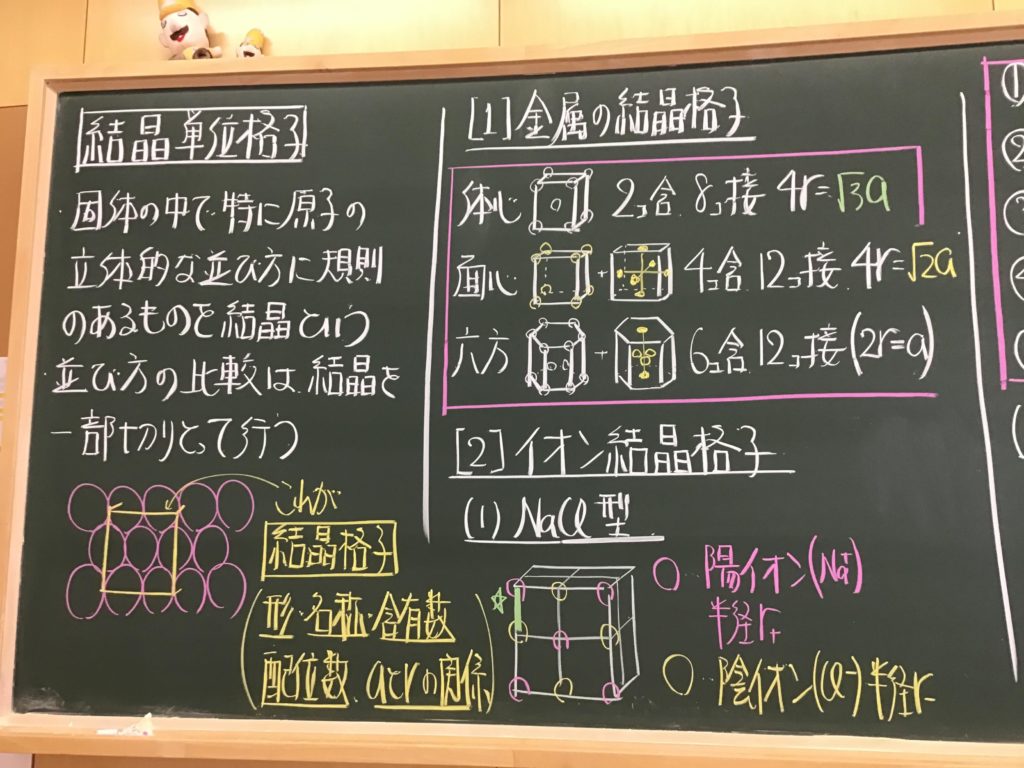 結晶単位格子
・固体の中で特に原子の
立体的な並び方に規則
のあるものを結晶という
・並び方の比較は、結晶を
一部切りとって行う
これが
結晶格子
(形・名称・含有数
配位数、aとrの関係)
[1]金属の結晶格子
体心 2コ含 8コ接 4r=√3a
面心 + 4コ含 12コ接 4r=√2a
六方 + 6コ含 12コ接 (2r=a)
[2]イオン結晶格子
(1) NaCl型
☆
○ 陽イオン(Na⁺)
半径r₊
○ 陰イオン(Cl⁻)半径r₋
①
②